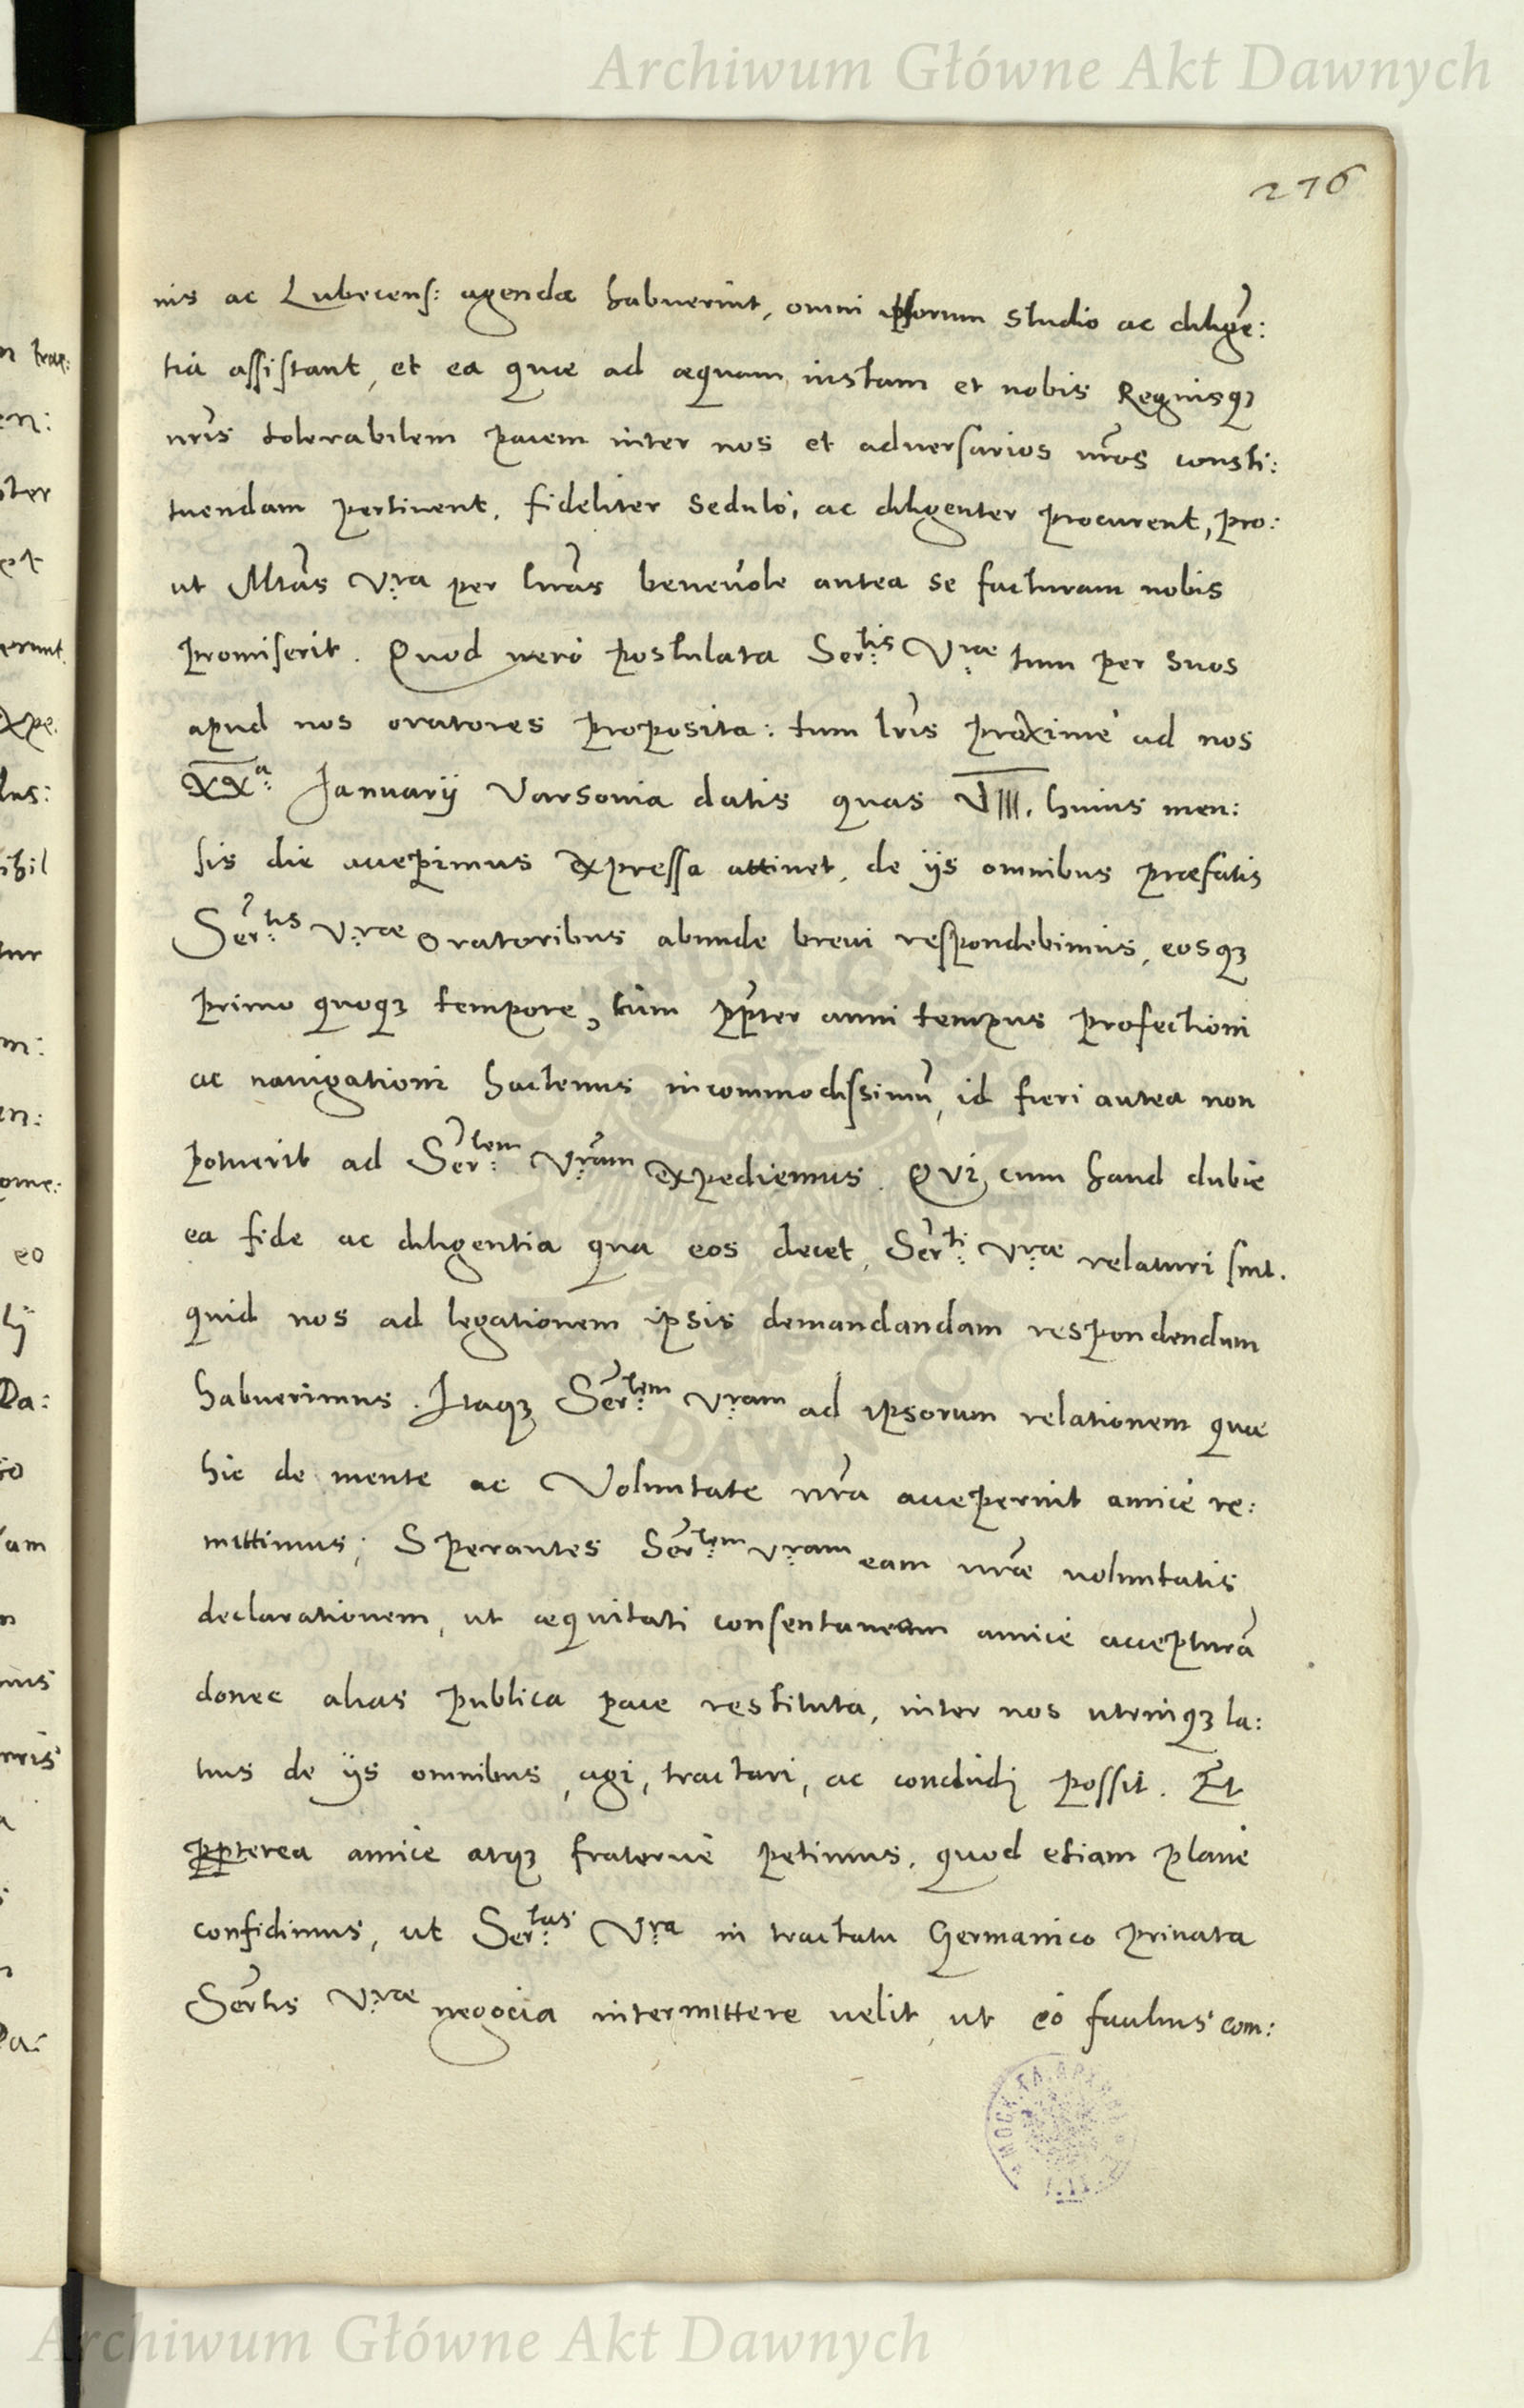 Archiwum Główne Akt Dawnych
276
nis ac Lubecens: agenda habuerint, omni ipsorum studio ac dilige͂:
tia assistant, et ea quæ ad æquam iustam et nobis Regnisqȝ
nr̃is tolerabilem pacem inter nos et aduersarios nr̃os consti:
tuendam pertinent, fideliter sedulo, ac diligenter procurent, pro:
ut Mtãs Vra per lr̃as beneuole antea se facturam nobis
promiserit. Quod uero postulata Ser:tis Vræ tum per suos
apud nos oratores proposita: tum lr̃is proxime ad nos
XXa Januarij Varsouia datis quas VIII. huius men:
sis die accepimus expressa attinet, de ijs omnibus præfatis
Ser:tis Vræ oratoribus abunde breui respondebimus, eosqȝ
primo quoqȝ tempore, cùm ppter anni tempus profectioni
ac nauigationi hactenus incommodissimũ, id fieri antea non
potuerit ad Ser:tem Vram expediemus. Qui cum haud dubie
ea fide ac diligentia qua eos decet, Ser:ti Vræ relaturi sint.
quid nos ad legationem ipsis demandandam respondendum
habuerimus. Itaqȝ Ser:tem Vram ad ipsorum relationem quæ
hic de mente ac Voluntate nr̃a acceperint amice re:
mittimus; Sperantes Ser:tem Vram eam nr̃æ uoluntatis
declarationem, ut æquitati consentaneam amice accepturã
donec alias publica pace restituta, inter nos utrinqȝ la:
tius de ijs omnibus, agi, tractari, ac concludi possit. Et
ppterea amice atqȝ fraterne petimus, quod etiam plane
confidimus, ut Ser:tas Vra in tractatu Germanico priuata
Sertis Vræ negocia intermittere uelit, ut eò facilius com:
Archiwum Główne Akt Dawnych